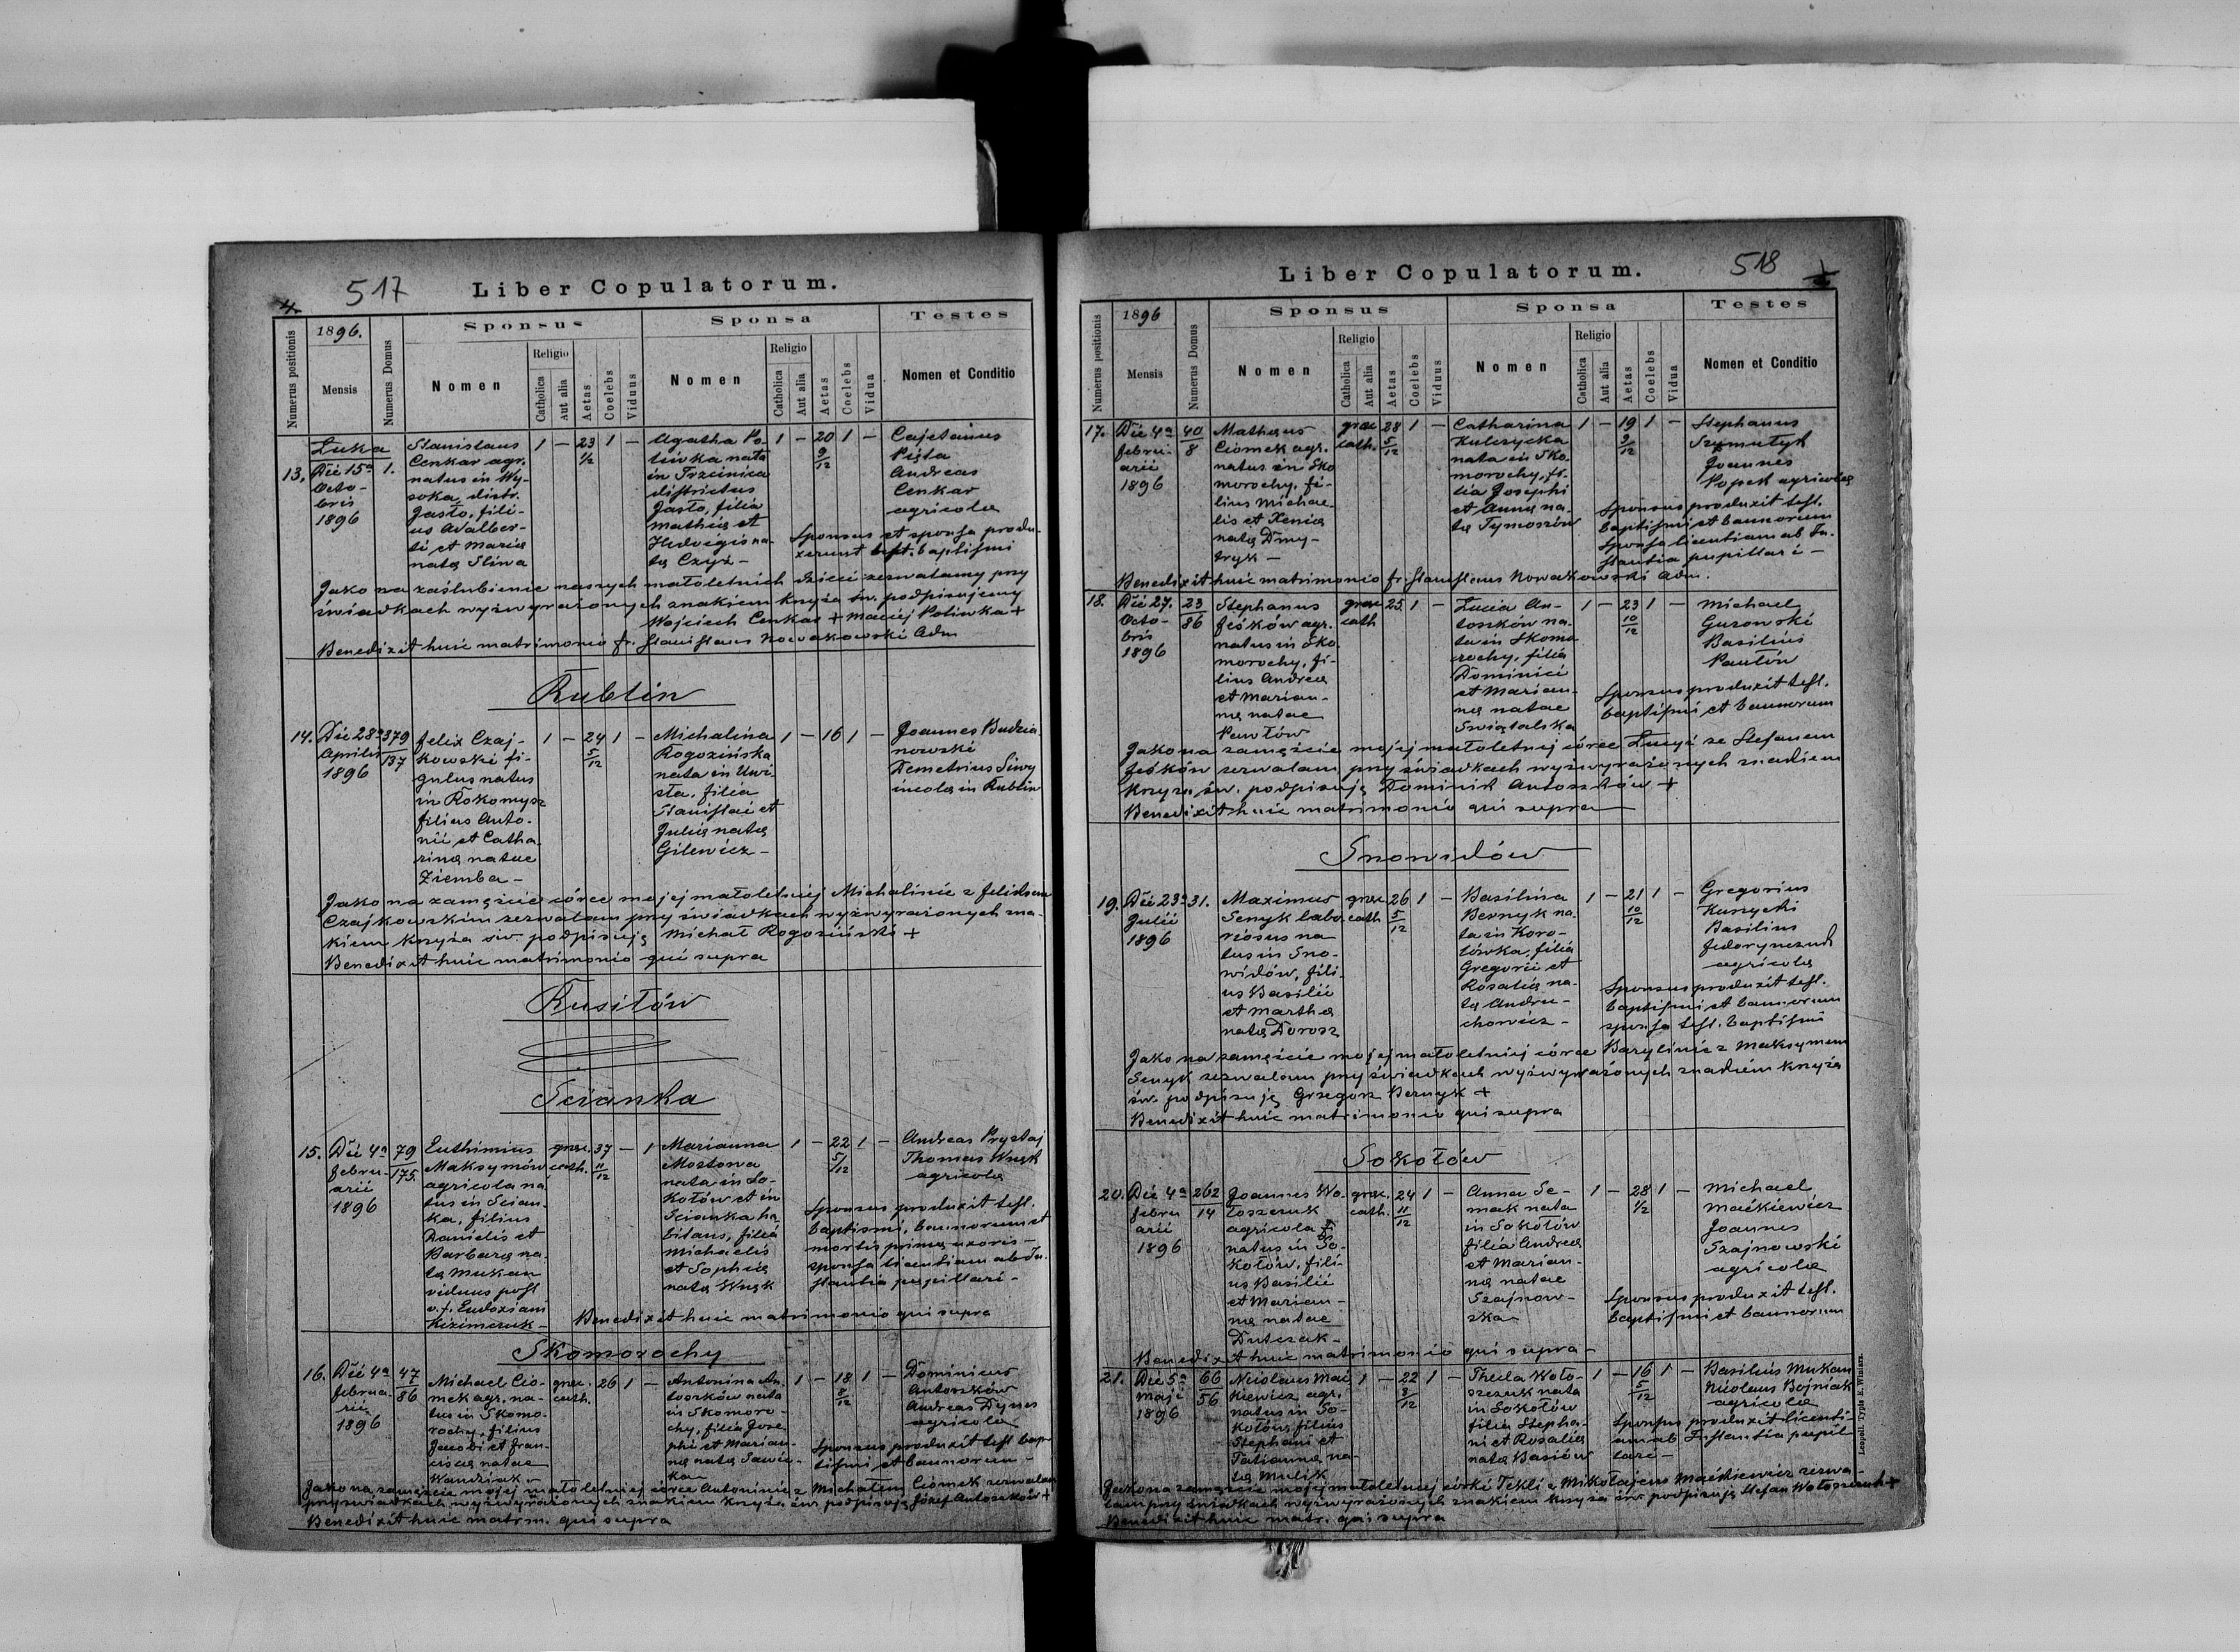 517
Liber Copulatorum.
4.
Numerus positionis
1896.
Mensis
Numerus Domus
Sponsus
Nomen
Religio
Catholica
Aut alia
Aetas
Coelebs
Viduus
Sponsa
Nomen
Religio
Catholica
Aut alia
Aetas
Coelebs
Vidua
Testes
Nomen et Conditio
Łuka
13.
Die 15a
Octo-
bris
1896
1.
Stanislaus
Cenkar agr.
natus in Wy-
soka distr.
Jasło, fili-
us Adalber-
ti et Maria
nata Sliwa
1 — 23 1/2 1 —
Agatha Po-
liwka nata
in Trzcinica
districtus
Jasło, filia
Mathia et
Hedvigis na-
ta Czyż —
1 — 20 9/12 1 —
Cajetanus
Pięta
Andreas
Cenkar
agricola
Sponsus et sponsa produ-
xerunt test. baptismi
Jako na zaślubienie naszych małoletnich dzieci zezwalamy przy
świadkach wyżwyrażonych znakiem krzyża św. podpisujemy
Wojciech Cenkar + Maciej Poliwka +
Benedixit huic matrimonio fr. Stanislaus Nowakowski Adm
Rublin
14.
Die 28a
Aprilis
1896
379
137
Felix Czaj-
kowski fi-
gulus natus
in Rokomysz
filius Anto-
nii et Catha-
rina natae
Ziemba —
1 — 24 5/12 1 —
Michalina
Rogozińska
nata in Uwi-
sła, filia
Stanislai et
Julia nata
Gilewicz —
1 — 16 1 —
Joannes Budzia-
nowski
Demetrius Siwy
incola in Rublin
Jako na zamęście córce mojej małoletniej Michalinie z Feliksem
Czajkowskim zezwalam przy świadkach wyżwyrażonych zna-
kiem krzyża św. podpisuję Michał Rogoziński +
Benedixit huic matrimonio qui supra
Rusiłów
Scianka
15.
Die 4a
Febru-
arii
1896
79
175.
Euthimius
Maksymów
agricola na-
tus in Scian-
ka, filius
Danielis et
Barbara na-
ta Mukan
viduus post
v. f. Eudoxiam
Kizimczuk —
graec.
cath.
37 11/12 — 1
Marianna
Mostowa
nata in So-
kołów et in
Scianka ha-
bitans, filia
Michaelis
et Sophia
nata Wnęk
1 — 22 5/12 1 —
Andreas Prystaj
Thomas Wnęk
agricola
Sponsus produxit test.
baptismi, bannorum et
mortis prima uxoris —
sponsa licentiam ab In-
stantia pupillari —
Benedixit huic matrimonio qui supra
Skomorochy
16.
Die 4a
februa-
rii
1896
47
86
Michael Cio-
mek agr. na-
tus in Skomo-
rochy, filius
Jacobi et Fran-
cisca natae
Wandziak —
graec.
cath.
26 1 —
Antonina An-
toszków nata
in Skomoro-
chy, filia Jose-
phi et Marian-
na nata Sawic-
ka
1 — 18 8/12 1 —
Dominicus
Antoszków
Andreas Dynes
agricola
Sponsus produxit test bap-
tismi et bannorum —
Jako na zamęście mojej małoletniej córce Antoninie z Michałem Ciomek zezwalam
przy świadkach wyżwyrażonych znakiem krzyża św. podpisuję Józef Antoszków +
Benedixit huic matrm. qui supra
Liber Copulatorum.
518
Numerus positionis
1896
Mensis
Numerus Domus
Sponsus
Nomen
Religio
Catholica
Aut alia
Aetas
Coelebs
Viduus
Sponsa
Nomen
Religio
Catholica
Aut alia
Aetas
Coelebs
Vidua
Testes
Nomen et Conditio
17.
Die 4a
febru-
arii
1896
40
8
Mathaus
Ciomek agr.
natus in Sko
morochy, fi-
lius Michae-
lis et Xenia
nata Dmy-
tryk —
graec
cath.
28 5/12 1 —
Catharina
Kulczycka
nata in Sko-
morochy, fi-
lia Josephi
et Anna na-
ta Tymoszów
1 — 19 9/12 1 —
Stephanus
Szmułyk
Joannes
Popek agricola
Sponsus produxit test.
baptismi et bannorum
sponsa licentiam ab In-
stantia pupillari —
Benedixit huic matrimonio fr. Stanislaus Nowakowski Adm.
18.
Die 27.
Octo-
bris
1896
23
86
Stephanus
Feśków agr.
natus in Sko
morochy, fi-
lius Andrea
et Marian-
na natae
Pawłów
graec
cath
25 1 —
Lucia An-
toszków na-
ta in Skomo-
rochy, filia
Dominici
et Marian-
na natae
Świątalska
1 — 23 10/12 1 —
Michael
Gurowski
Basilius
Pawłów
Sponsus produxit test.
baptismi et bannorum
Jako na zamęście mojej małoletniej córce Łucyi ze Stefanem
Feśków zezwalam przy świadkach wyżwyrażonych znakiem
krzyża św. podpisuję Dominik Antoszków +
Benedixit huic matrimonio qui supra
Snowidów
19.
Die 23a
Julii
1896
31.
Maximus
Senyk labo-
riosus na
tus in Sno-
widów, fili-
us Basilii
et Martha
nata Dorosz
graec
cath
26 5/12 1 —
Basilina
Bernyk na-
ta in Koro-
lówka, filia
Gregorii et
Rosalia na-
ta Andru-
chowicz —
1 — 21 10/12 1 —
Gregorius
Kunycki
Basilius
Fedorynczuk
agricola
Sponsus produxit test.
baptismi et bannorum
sponsa test. baptismi
Jako na zamęście mojej małoletniej córce Bazylinie z Maksymem
Senyk zezwalam przy świadkach wyżwyrażonych znakiem krzyża
św. podpisuję Grzegorz Bernyk +
Benedixit huic matrimonio qui supra
Sokołów
20.
Die 4a
febru
arii
1896
262
14
Joannes Wo-
łoszczuk
agricola
natus in So-
kołów, fili-
us Basilii
et Marian-
na natae
Dutczak —
graec.
cath.
24 11/12 1 —
Anna Se-
mak nata
in Sokołów
filia Andrea
et Marian-
na natae
Szajnow-
ska
1 — 28 1/2 1 —
Michael
Maćkiewicz
Joannes
Szajnowski
agricola
Sponsus produxit test.
baptismi et bannorum
Benedixit huic matrimonio qui supra —
21.
Die 5a
Maji
1896
66
56
Nicolaus Mać
kiewicz agr.
natus in So-
kołów, filius
Stephani et
Tatianna na-
ta Mulik
1 — 22 8/12 1 —
Thecla Woło-
szczuk nata
in Sokołów
filia Stepha-
ni et Rosalia
nata Basiów
1 — 16 5/12 1 —
Basilius Mukan
Nicolaus Bojniak
agricola
Sponsus produxit licenti-
am ab Instantia pupil-
lari —
Jako na zamęście mojej małoletniej córki Tekli z Mikołajem Maćkiewicz zezwa-
lam przy świadkach wyżwyrażonych znakiem krzyża św. podpisuję Stefan Wołoszczuk +
Benedixit huic matr. qui supra
Leopoli. Typis E. Winiarz.